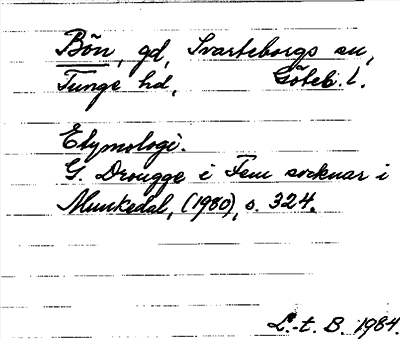 Bön, gd, Svarteborgs sn,
Tunge hd, Göteb. l.
Etymologi.
G. Drougge i Fem socknar i
Munkedal, (1980), s. 324.
L.-t. B. 1984.